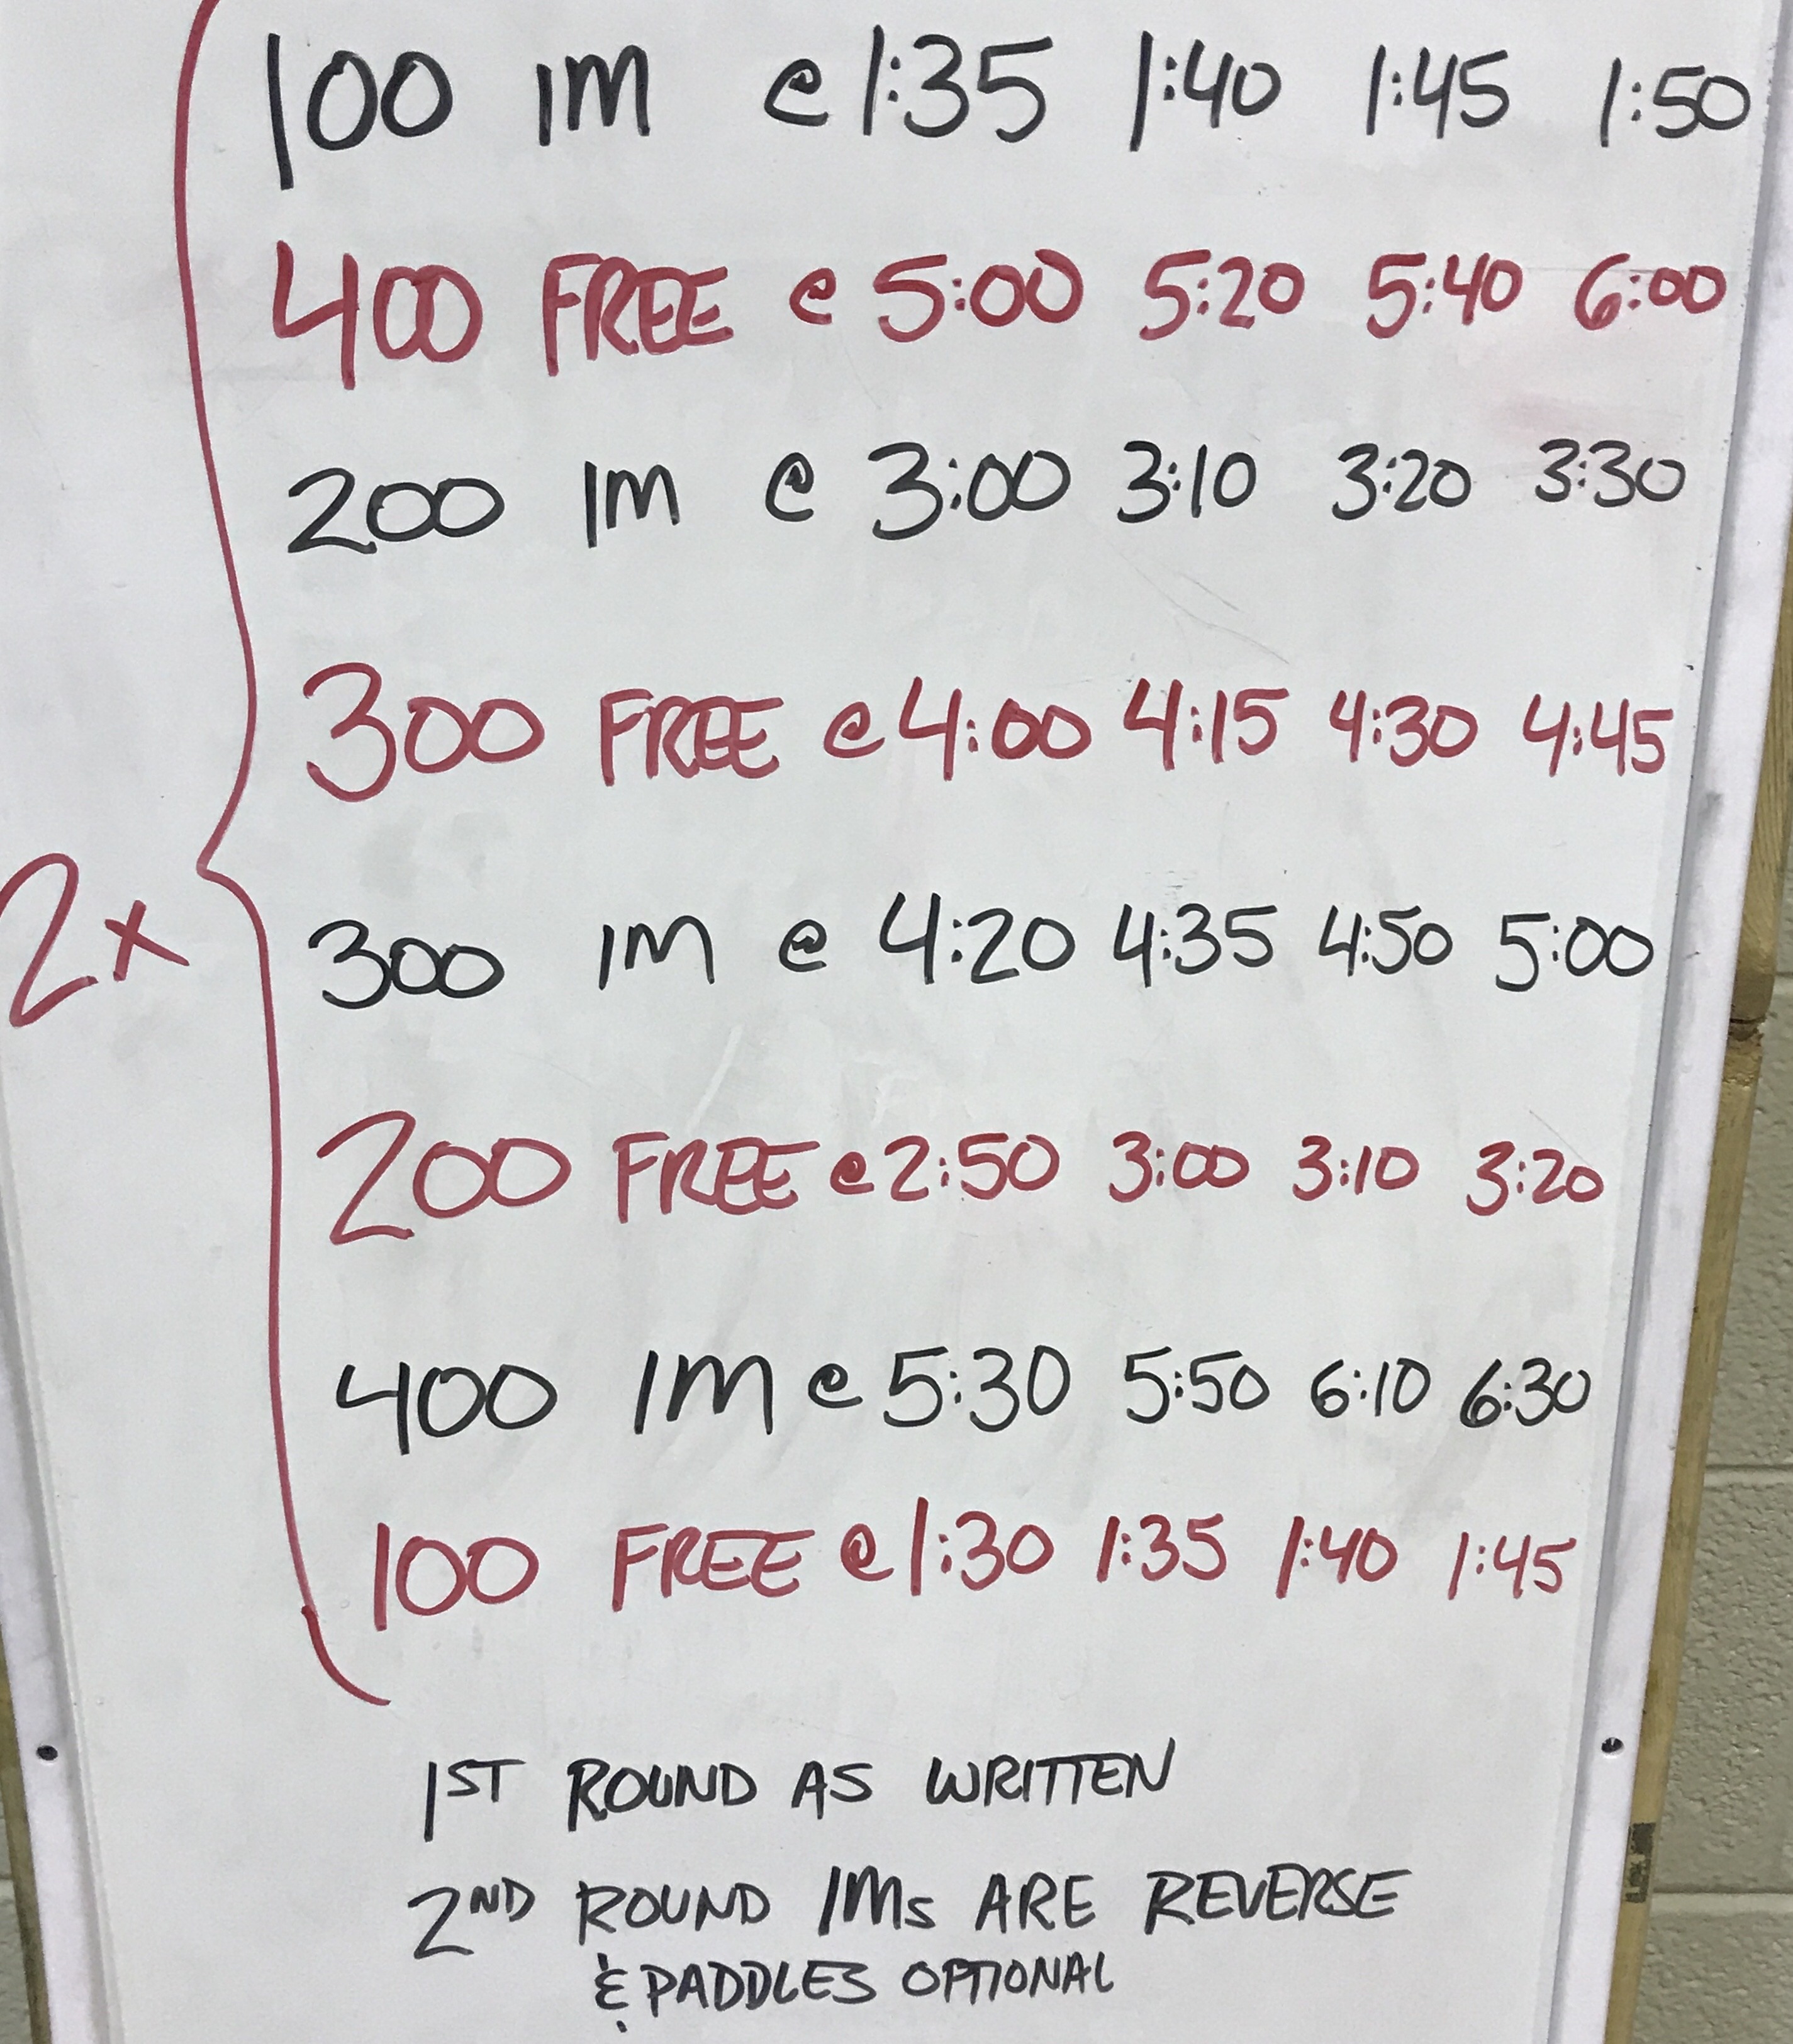 100 IM @ 1:35 1:40 1:45 1:50
400 FREE @ 5:00 5:20 5:40 6:00
200 IM @ 3:00 3:10 3:20 3:30
300 FREE @ 4:00 4:15 4:30 4:45
2x
300 IM @ 4:20 4:35 4:50 5:00
200 FREE @ 2:50 3:00 3:10 3:20
400 IM @ 5:30 5:50 6:10 6:30
100 FREE @ 1:30 1:35 1:40 1:45
1ST ROUND AS WRITTEN
2ND ROUND IMs ARE REVERSE
& PADDLES OPTIONAL